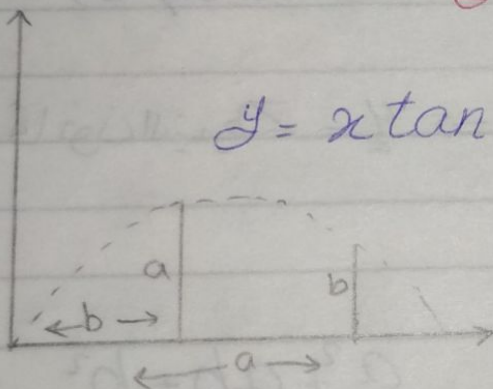 y = x tan
a
b
b
a